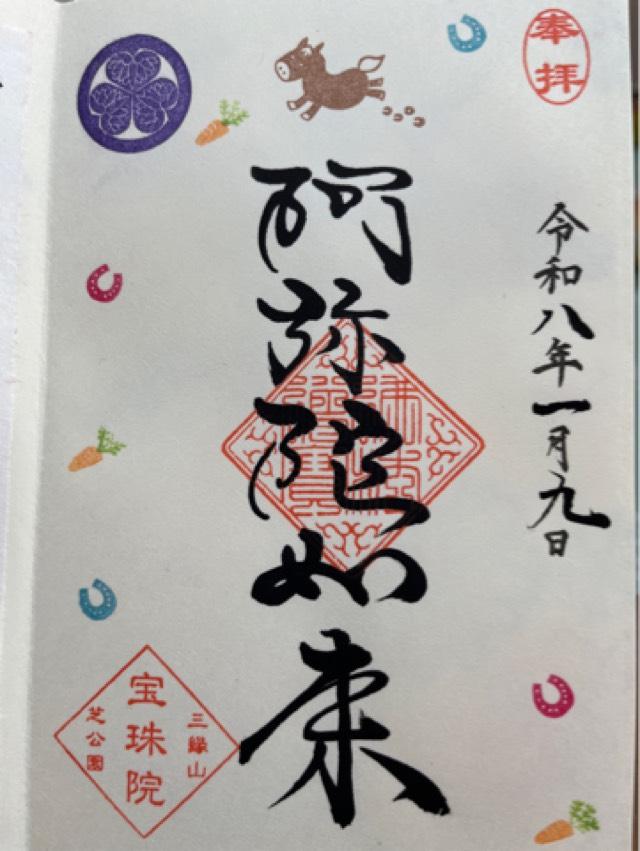 奉拝
令和八年一月九日
阿弥陀如来
三縁山
宝珠院
芝公園